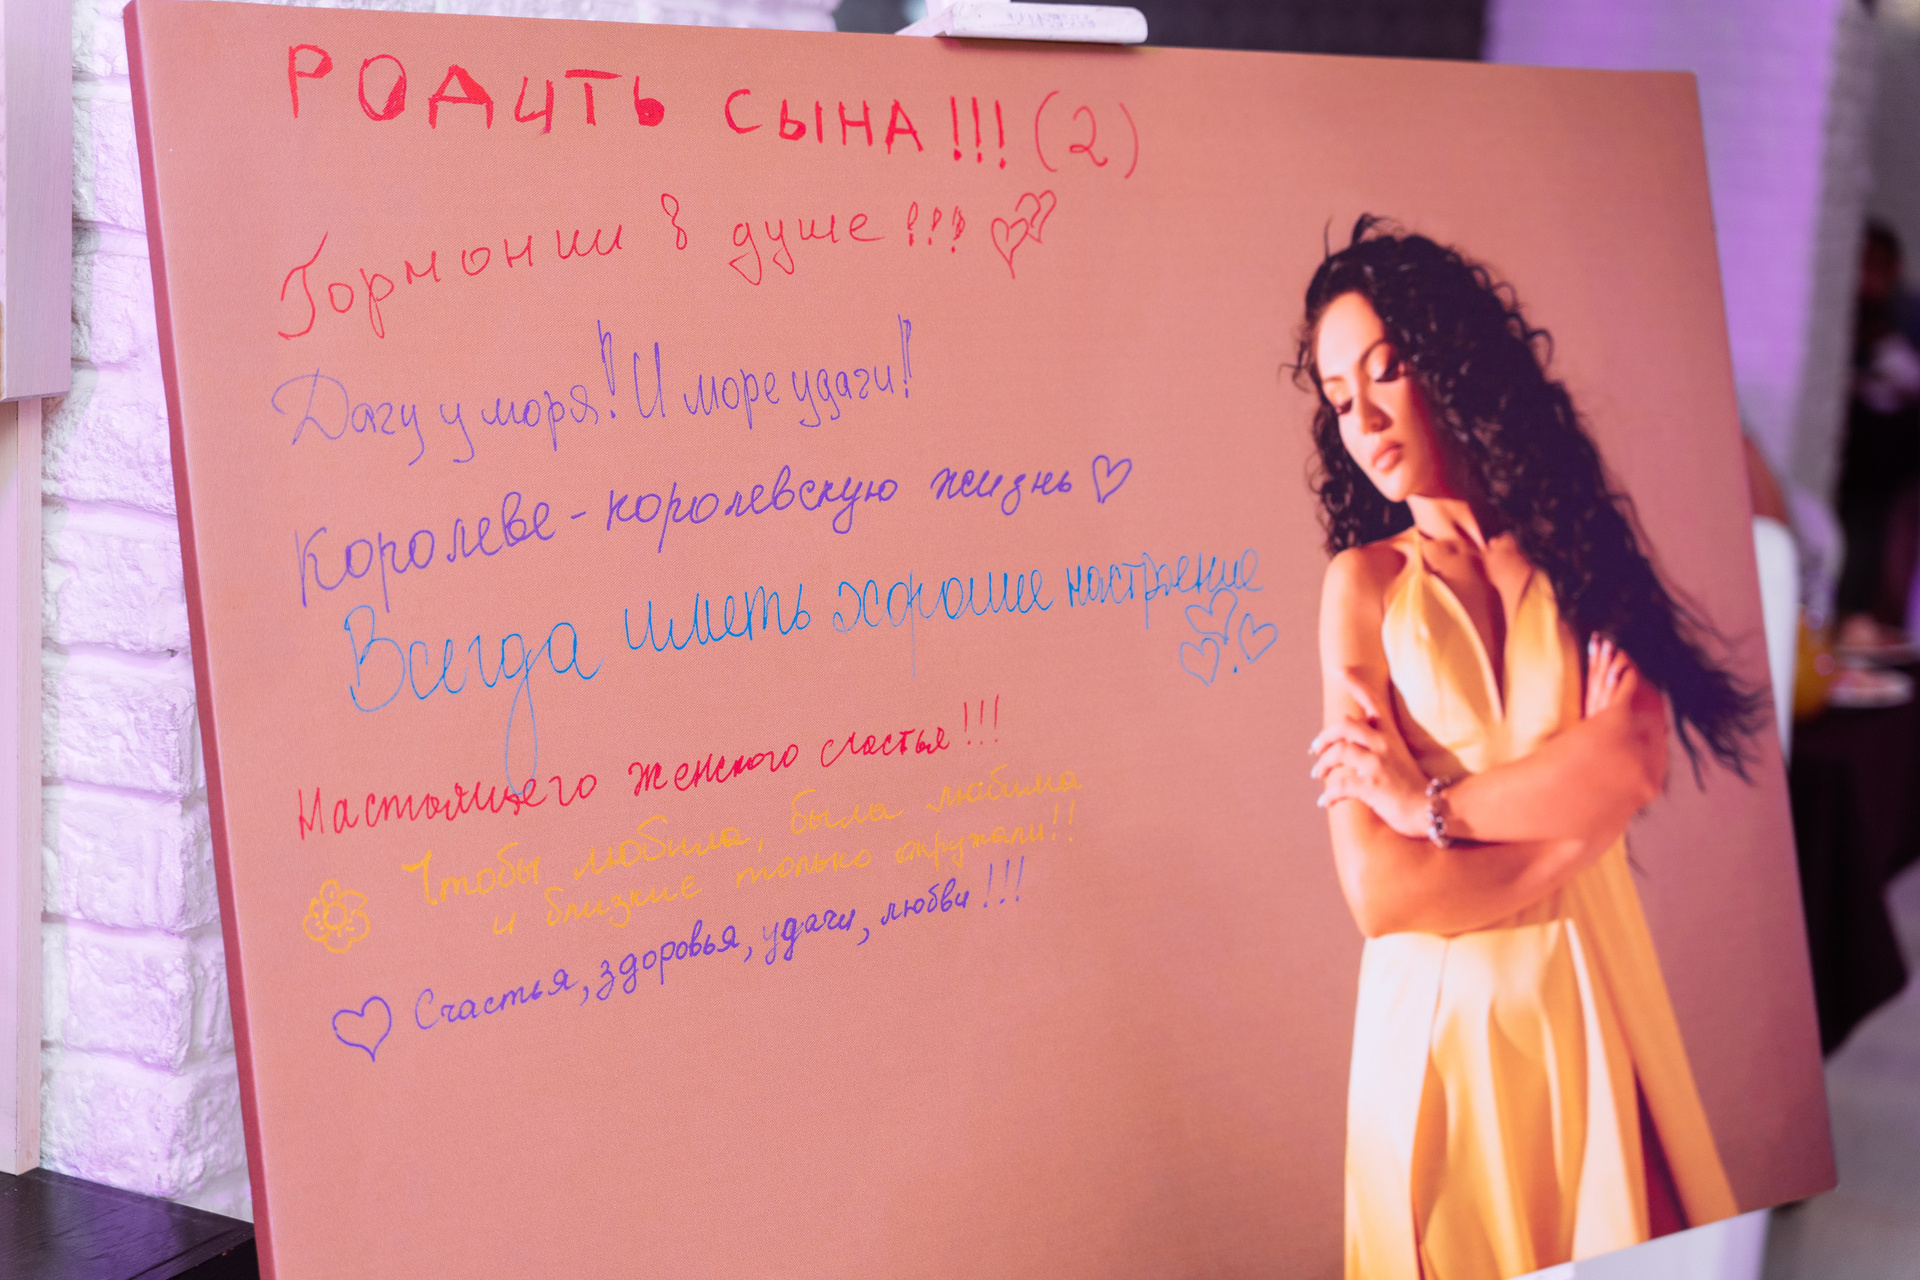 РОДИТЬ СЫНА!!! (2)
Гормонии в душе!!!
Дачу у моря! И море удачи!
Королеве - королевскую жизнь
Всегда иметь хорошие настроение
Настоящего женского счастья!!!
Чтобы любила, была любима
и близкие только окружали!!
Счастья, здоровья, удачи, любви!!!